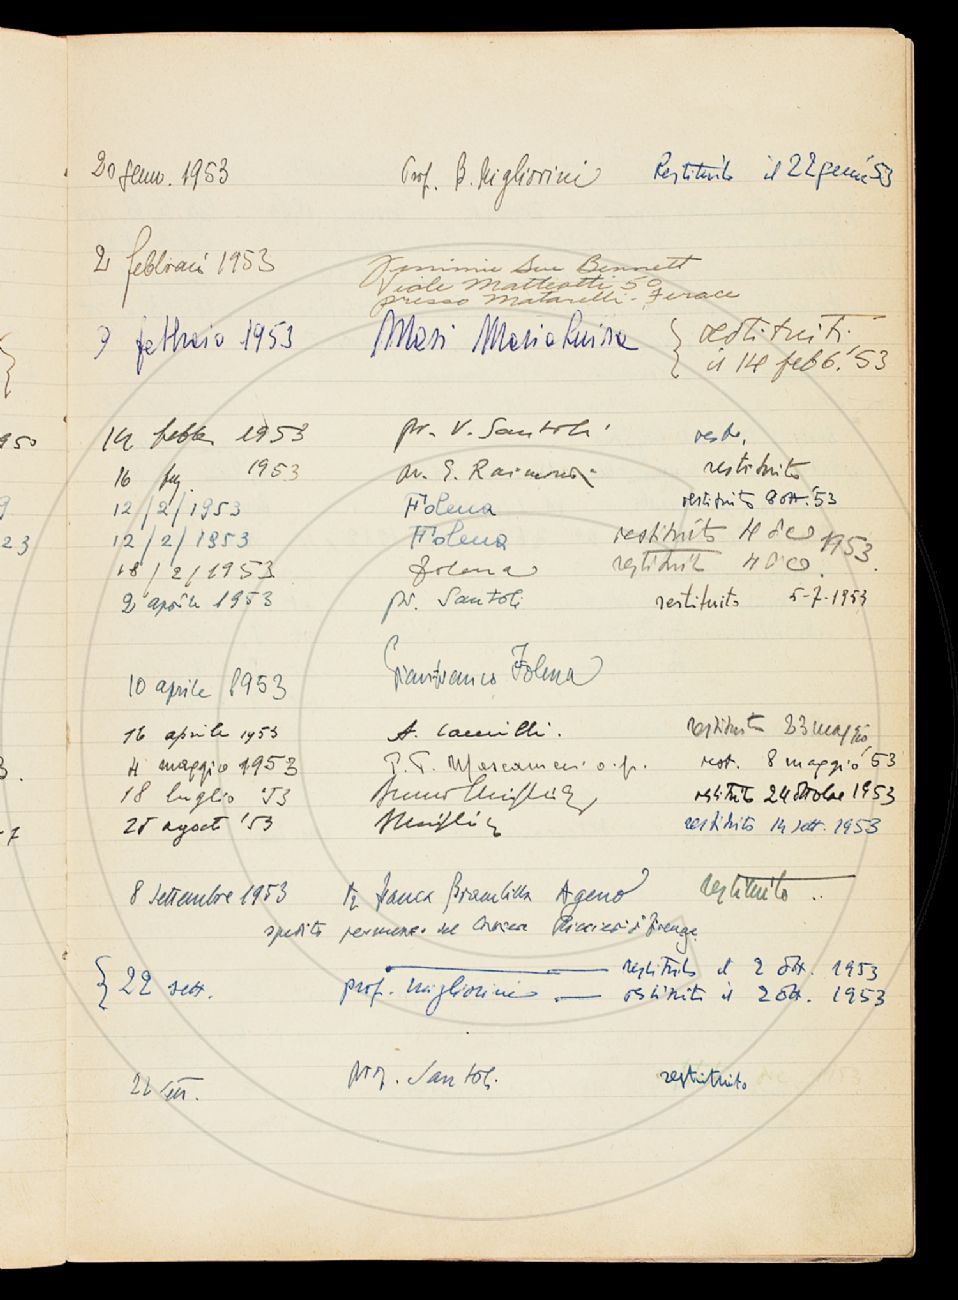 20 genn. 1953 Prof. B. Migliorini Restituito il 22 genn. '53
2 febbraio 1953 Sue Bennett
Viale Matteotti 50
presso Matarelli - Firenze
9 febbraio 1953 Masi Maria Luisa } restituiti
il 14 febb. '53
14 febbr. 1953 pr. V. Santoli rest.
16 1953 E. Raimondi restituito
12/2/1953 Folena restituito 8 ott. '53
12/2/1953 Folena restituito 4 dic 1953.
18/2/1953 Folena restituito 4 dic.
2 aprile 1953 pr. Santoli restituito 5-7-1953
10 aprile 1953 Gianfranco Folena
16 aprile 1953 A. Camilli. restituito 23 maggio
4 maggio 1953 o.p. rest. 8 maggio '53
18 luglio '53 Bruno Migliorini restituito 24 ottobre 1953
25 agosto '53 Migliorini restituito 14 sett. 1953
8 settembre 1953 Franca Brambilla Ageno restituito
spedito Ricciardi Firenze
{ restituito il 2 ott. 1953
22 sett. prof. Migliorini — restituito il 2 ott. 1953
22 prof. Santoli. restituito